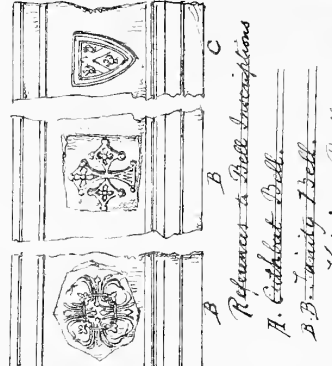 C
B
B
References to Bell Inscriptions
A. Cuthbert Bell.
B.B. Trinity Bell.